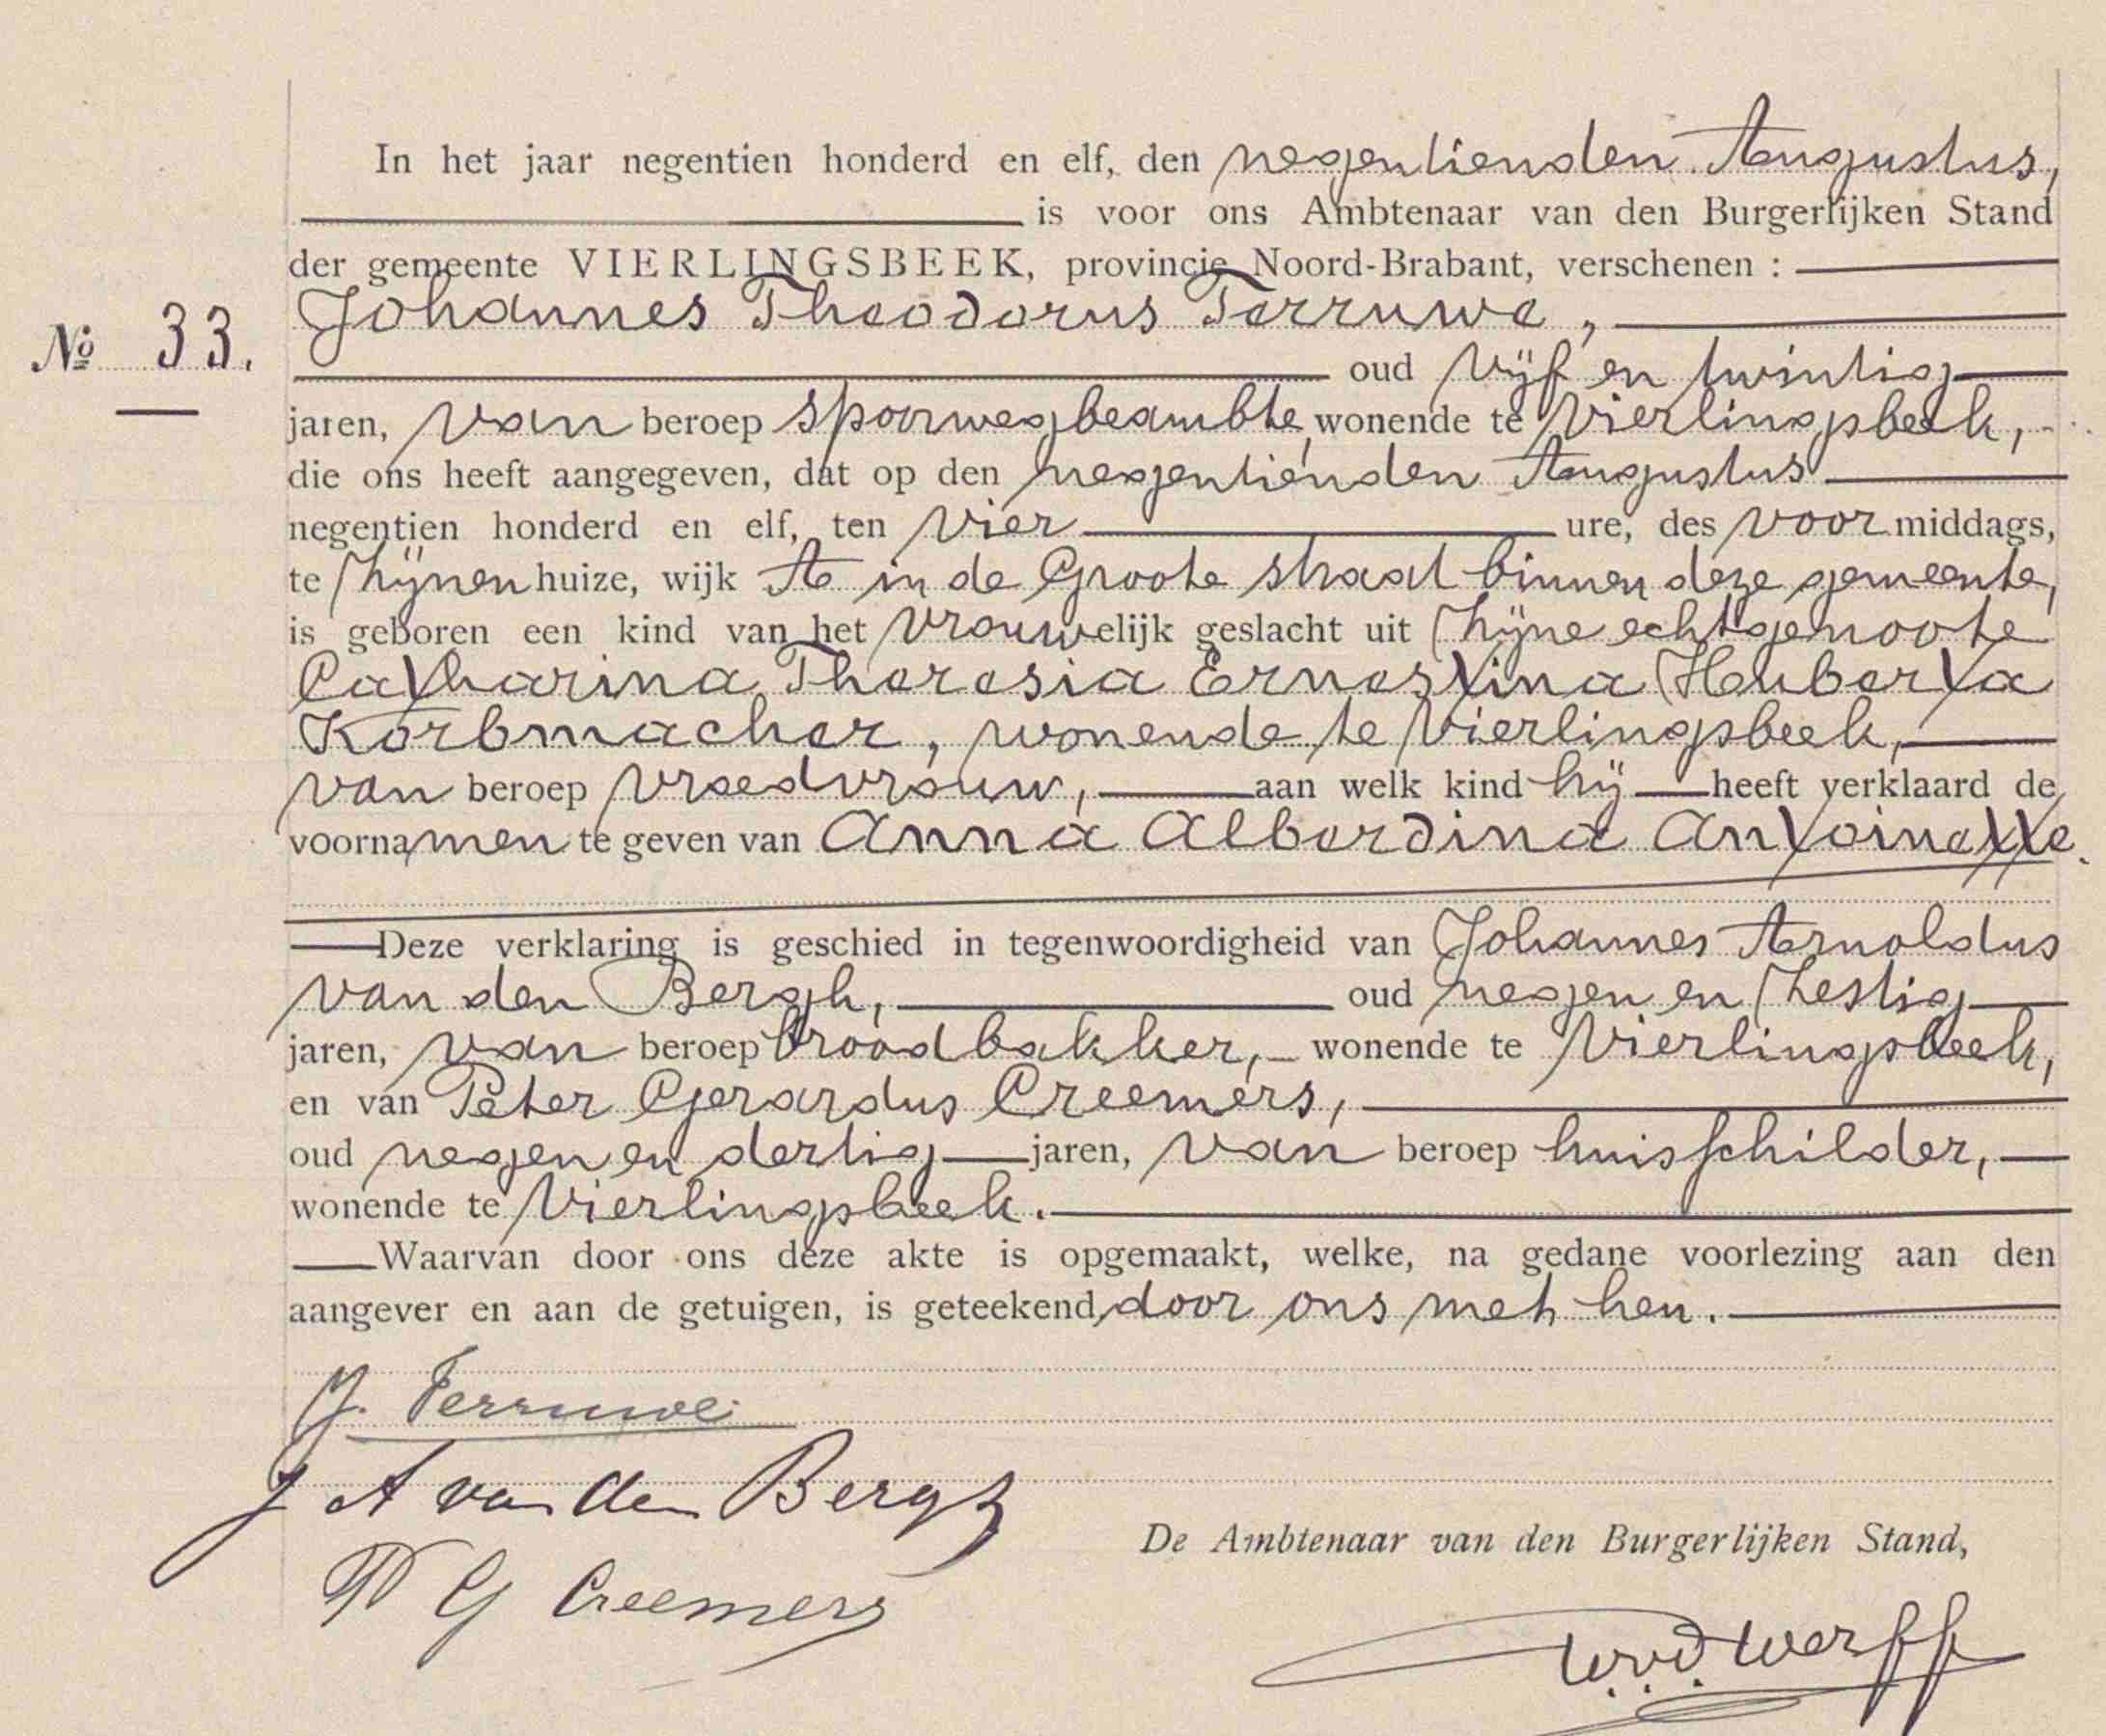 In het jaar negentien honderd en elf, den negentienden Augustus,
is voor ons Ambtenaar van den Burgerlijken Stand
der gemeente VIERLINGSBEEK, provincie Noord-Brabant, verschenen :
Johannes Theodorus Terruwe,
No 33.
oud vijf en twintig
jaren, van beroep spoorwegbeambte, wonende te Vierlingsbeek,
die ons heeft aangegeven, dat op den negentienden Augustus
negentien honderd en elf, ten vier ure, des voormiddags,
te zijnen huize, wijk A in de Groote straat binnen deze gemeente,
is geboren een kind van het vrouwelijk geslacht uit zijne echtgenoote
Catharina Theresia Ernestina Huberta
Korbmacher, wonende te Vierlingsbeek,
van beroep vroedvrouw, aan welk kind hij heeft verklaard de
voornamen te geven van Anna Alberdina Antoinette.
Deze verklaring is geschied in tegenwoordigheid van Johannes Arnoldus
van den Bergh, oud negen en zestig
jaren, van beroep broodbakker, wonende te Vierlingsbeek,
en van Peter Gerardus Creemers,
oud negen en dertig jaren, van beroep huisschilder,
wonende te Vierlingsbeek.
Waarvan door ons deze akte is opgemaakt, welke, na gedane voorlezing aan den
aangever en aan de getuigen, is geteekend door ons met hen.
J. Terruwe
J A van den Bergh
P G Creemers
De Ambtenaar van den Burgerlijken Stand,
W.v.d. Werff